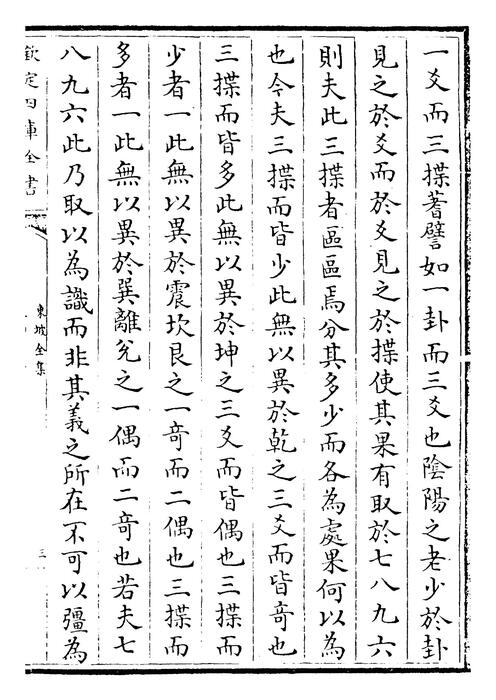 一爻而三揲蓍譬如一卦而三爻也陰陽之老少於卦
見之於爻而於爻見之於揲使其果有取於七八九六
則夫此三揲者區區焉分其多少而各為處果何以為
也今夫三揲而皆少此無以異於乾之三爻而皆奇也
三揲而皆多此無以異於坤之三爻而皆偶也三揲而
少者一此無以異於震坎艮之一奇而二偶也三揲而
多者一此無以異於巽離兌之一偶而二奇也若夫七
八九六此乃取以為識而非其義之所在不可以彊為
欽定四庫全書
東坡全集
三